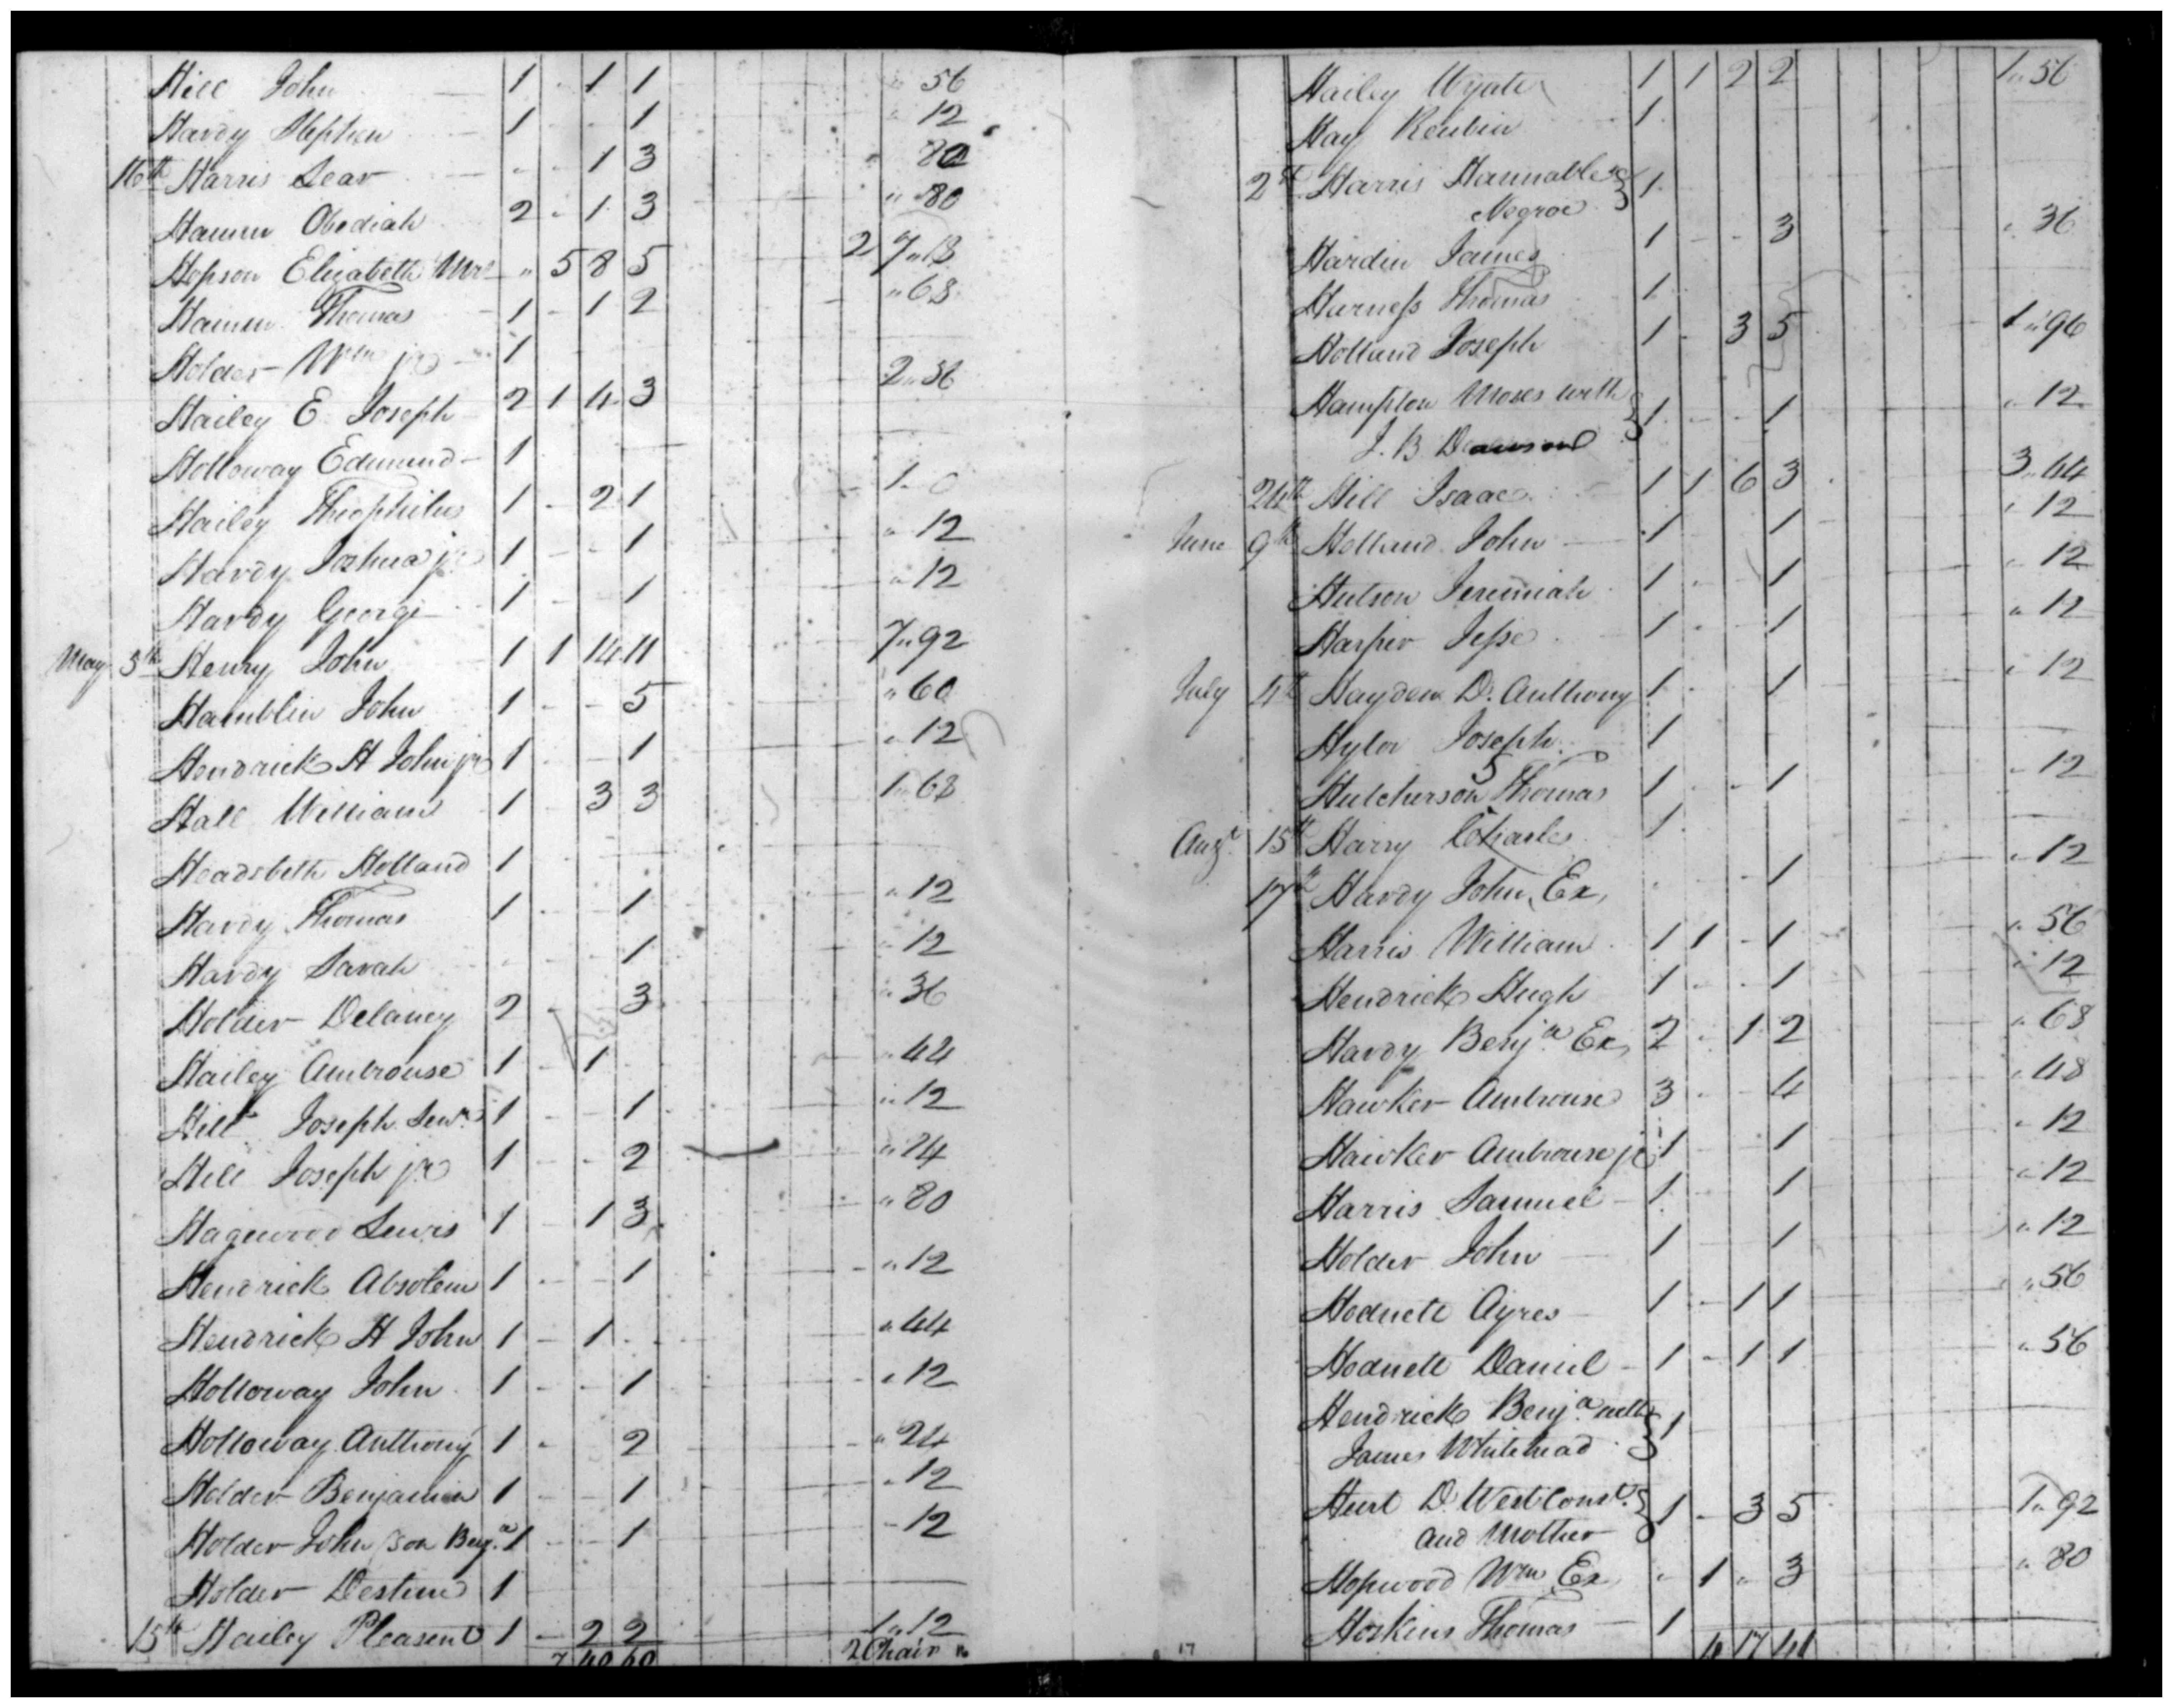 Hill John 1 - 1 1 " 56
Hardy Stephen 1 - - 1 " 12
16th Harris Lear - - 1 3 " 80
Hamm Obediah 2 - 1 3 " 80
Hopson Elizabeth Mrs " 5 8 5 2 7 " 13
Hamm Thomas 1 - 1 2 " 68
Holder Wm jr 1
Hailey E Joseph 2 1 4 3 2 " 36
Holloway Edmund 1
Hailey Theophilus 1 - 2 1 1 " 0
Hardy Joshua jr 1 - - 1 " 12
Hardy George 1 - - 1 " 12
May 3th Henry John 1 1 14 11 7 " 92
Hamblin John 1 - - 5 " 60
Hendrick H John jr 1 - - 1 " 12
Hall William 1 - 3 3 1 " 68
Headsbeth Holland 1
Hardy Thomas 1 - - 1 " 12
Hardy Sarah - - - 1 " 12
Holder Delaney 2 - - 3 " 36
Hailey Ambrouse 1 - 1 " 44
Hill Joseph Senr 1 - - 1 " 12
Hill Joseph jr 1 - - 2 " 24
Hagewood Lewis 1 - 1 3 " 80
Hendrick Absolem 1 - - 1 " 12
Hendrick H John 1 - 1 " 44
Holloway John 1 - - 1 " 12
Holloway Anthony 1 - 2 " 24
Holder Benjamin 1 - - 1 " 12
Holder John (son Benja 1 - - 1 - 12
Holder Destine 1
15th Hailey Pleasent 1 - 2 2 1 " 12
7 40 60 2 Chair
Hailey Wyatt 1 1 2 2 1 " 56
Hay Reubin 1
2st Harris Hannable a } 1
Negroe
Hardin James 1 - - 3 " 36
Harness Thomas 1
Holland Joseph 1 - 3 5 1 " 96
Hampton Moses with } 1 - - 1 " 12
J. B.
24th Hill Isaac 1 1 6 3 3 " 44
June 9th Holland John 1 - - 1 " 12
Hutson Jeremiah 1 - - 1 " 12
Harper Jesse 1 - - 1 " 12
July 4th Hayden D. Anthony 1 - 1 " 12
Hylor Joseph 1
Hutcherson Thomas 1 - - 1 " 12
Augt 15th Harry Charles 1
17th Hardy John, Ex, - - 1 " 12
Harris William 1 1 - 1 " 56
Hendrick Hugh 1 - - 1 " 12
Hardy Benja Ex, 2 - 1 2 " 68
Hawker Ambrouse 3 - - 4 " 48
Hawker Ambrouse jr 1 - - 1 " 12
Harris Samuel 1 - - 1 " 12
Holder John 1 - 1 " 12
Hodnett Ayres 1 - 1 1 " 56
Hodnett Daniel 1 - 1 1 " 56
Hendrick Benja with } 1
James Whitehead
Hurt D. West Const. } 1 - 3 5 1 " 92
and Mother
Hopwood Wm Ex " 1 " 3 " 80
Hoskins Thomas 1
17 41